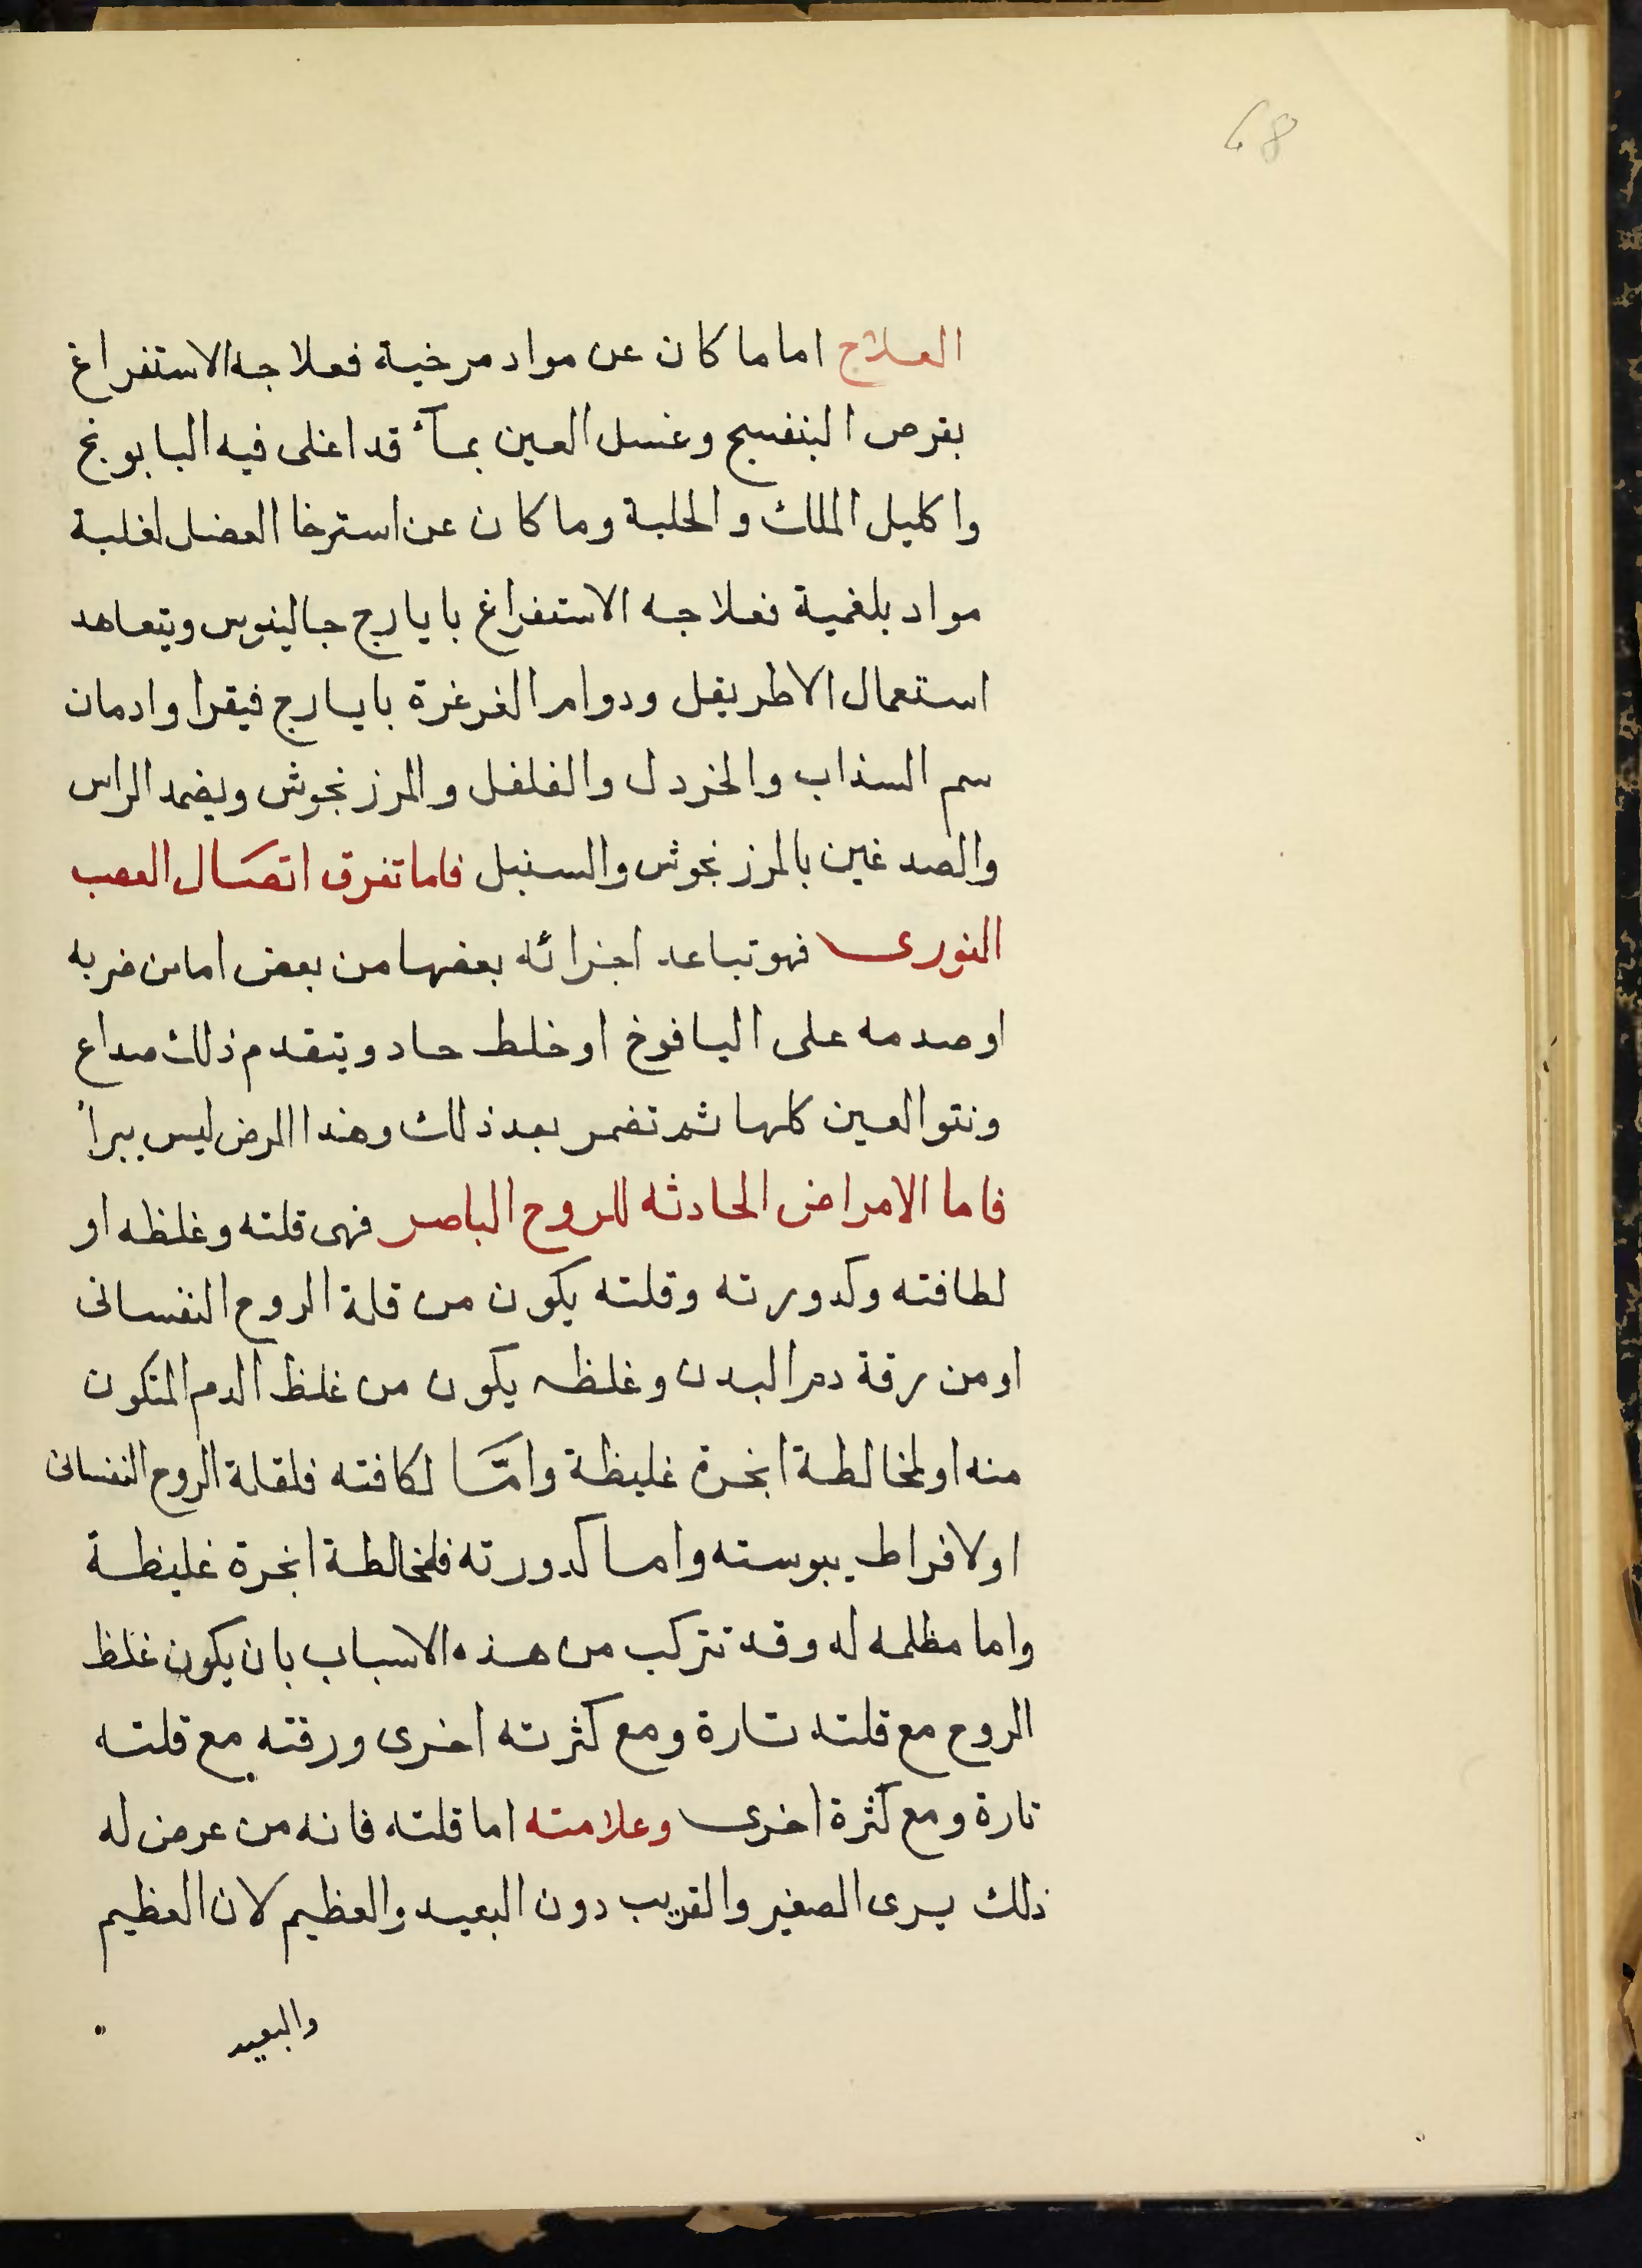 68
العلاج اما ما كان عن مواد مرخية فعلاجه الاستفراغ
بقرص البنفسج وغسل العين بمآء قد اغلى فيه البابونج
واكليل الملك والحلبة وما كان عن استرخا العضل لغلبة
مواد بلغمية فعلاجه الاستفراغ بايارج جالينوس ويتعاهد
استعمال الاطريفل ودوام الغرغرة بايارج فيقرا وادمان
سم السذاب والخردل والفلفل والمرزنجوش ويضمد الراس
والصدغين بالمرزنجوش والسنبل فاما تفرق اتصال العصب
النورى فهو تباعد اجزائه بعضها من بعض اما من ضربه
او صدمه على اليافوخ او خلط حاد ويتقدم ذلك صداع
ونتو العين كلها ثم تضمر بعد ذلك وهذا المرض ليس يبرأ
فاما الامراض الحادثه للروح الباصر فهى قلته وغلظه او
لطافته وكدورته وقلته يكون من قلة الروح النفسانى
او من رقة دم البدن وغلظه يكون من غلظ الدم المتكون
منه او لمخالطة ابخرة غليظة وامّا لكافته فلقلة الروح النفسانى
او لافراط يبوسته واما كدورته فلمخالطة ابخرة غليظة
واما مظلمه له وقد تتركب من هذه الاسباب بان يكون غلظ
الروح مع قلته تارة ومع كثرته اخرى ورقته مع قلته
تارة ومع كثرة اخرى وعلامته اما قلته فانه من عرض له
ذلك يرى الصغير والقريب دون البعيد والعظيم لان العظيم
والبعيد